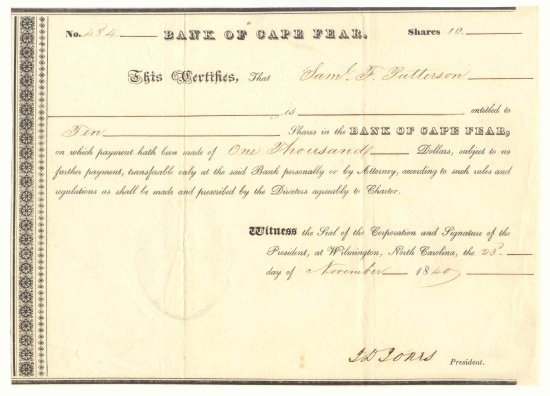 No. 484 BANK OF CAPE FEAR. Shares 10.
This Certifies, That Saml. F. Patterson
is entitled to
Ten Shares in the BANK OF CAPE FEAR,
on which payment hath been made of One Thousand Dollars, subject to no
further payment, transferable only at the said Bank personally or by Attorney, according to such rules and
regulations as shall be made and prescribed by the Directors agreeably to Charter.
Witness the Seal of the Corporation and Signature of the
President, at Wilmington, North Carolina, the 23d.
day of November 1840
J D Jones President.